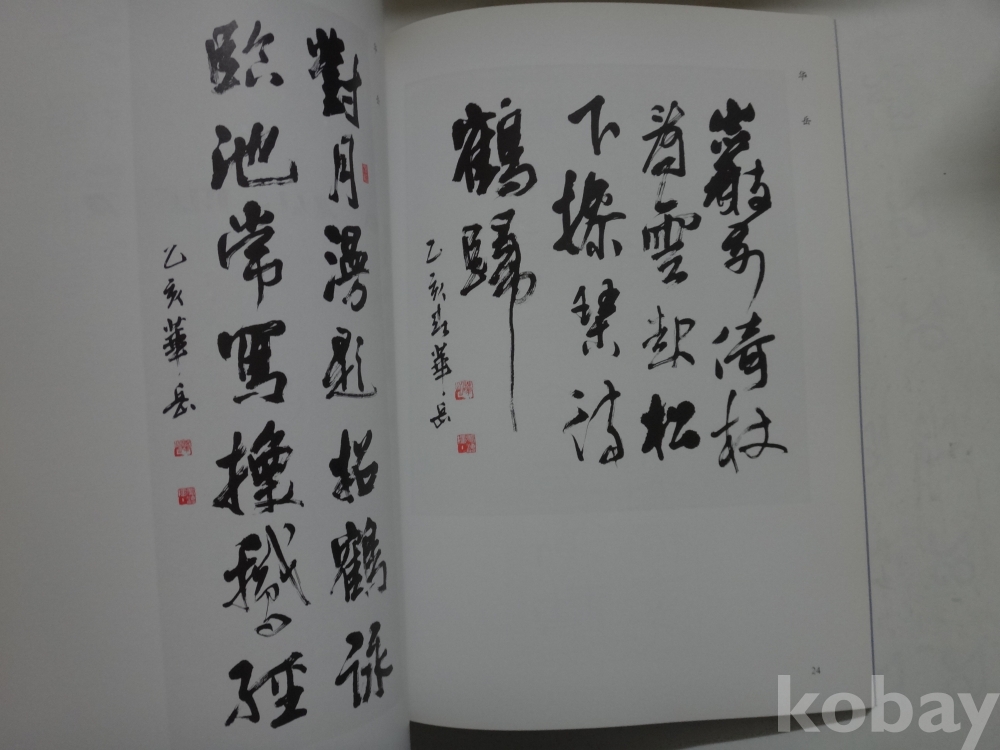 對月漫題招鶴詠
臨池常寫換鵝經
乙亥華岳
华岳
巖前倚杖
看雲起松
下操琴待
鶴歸
乙亥春華岳
24
kobay